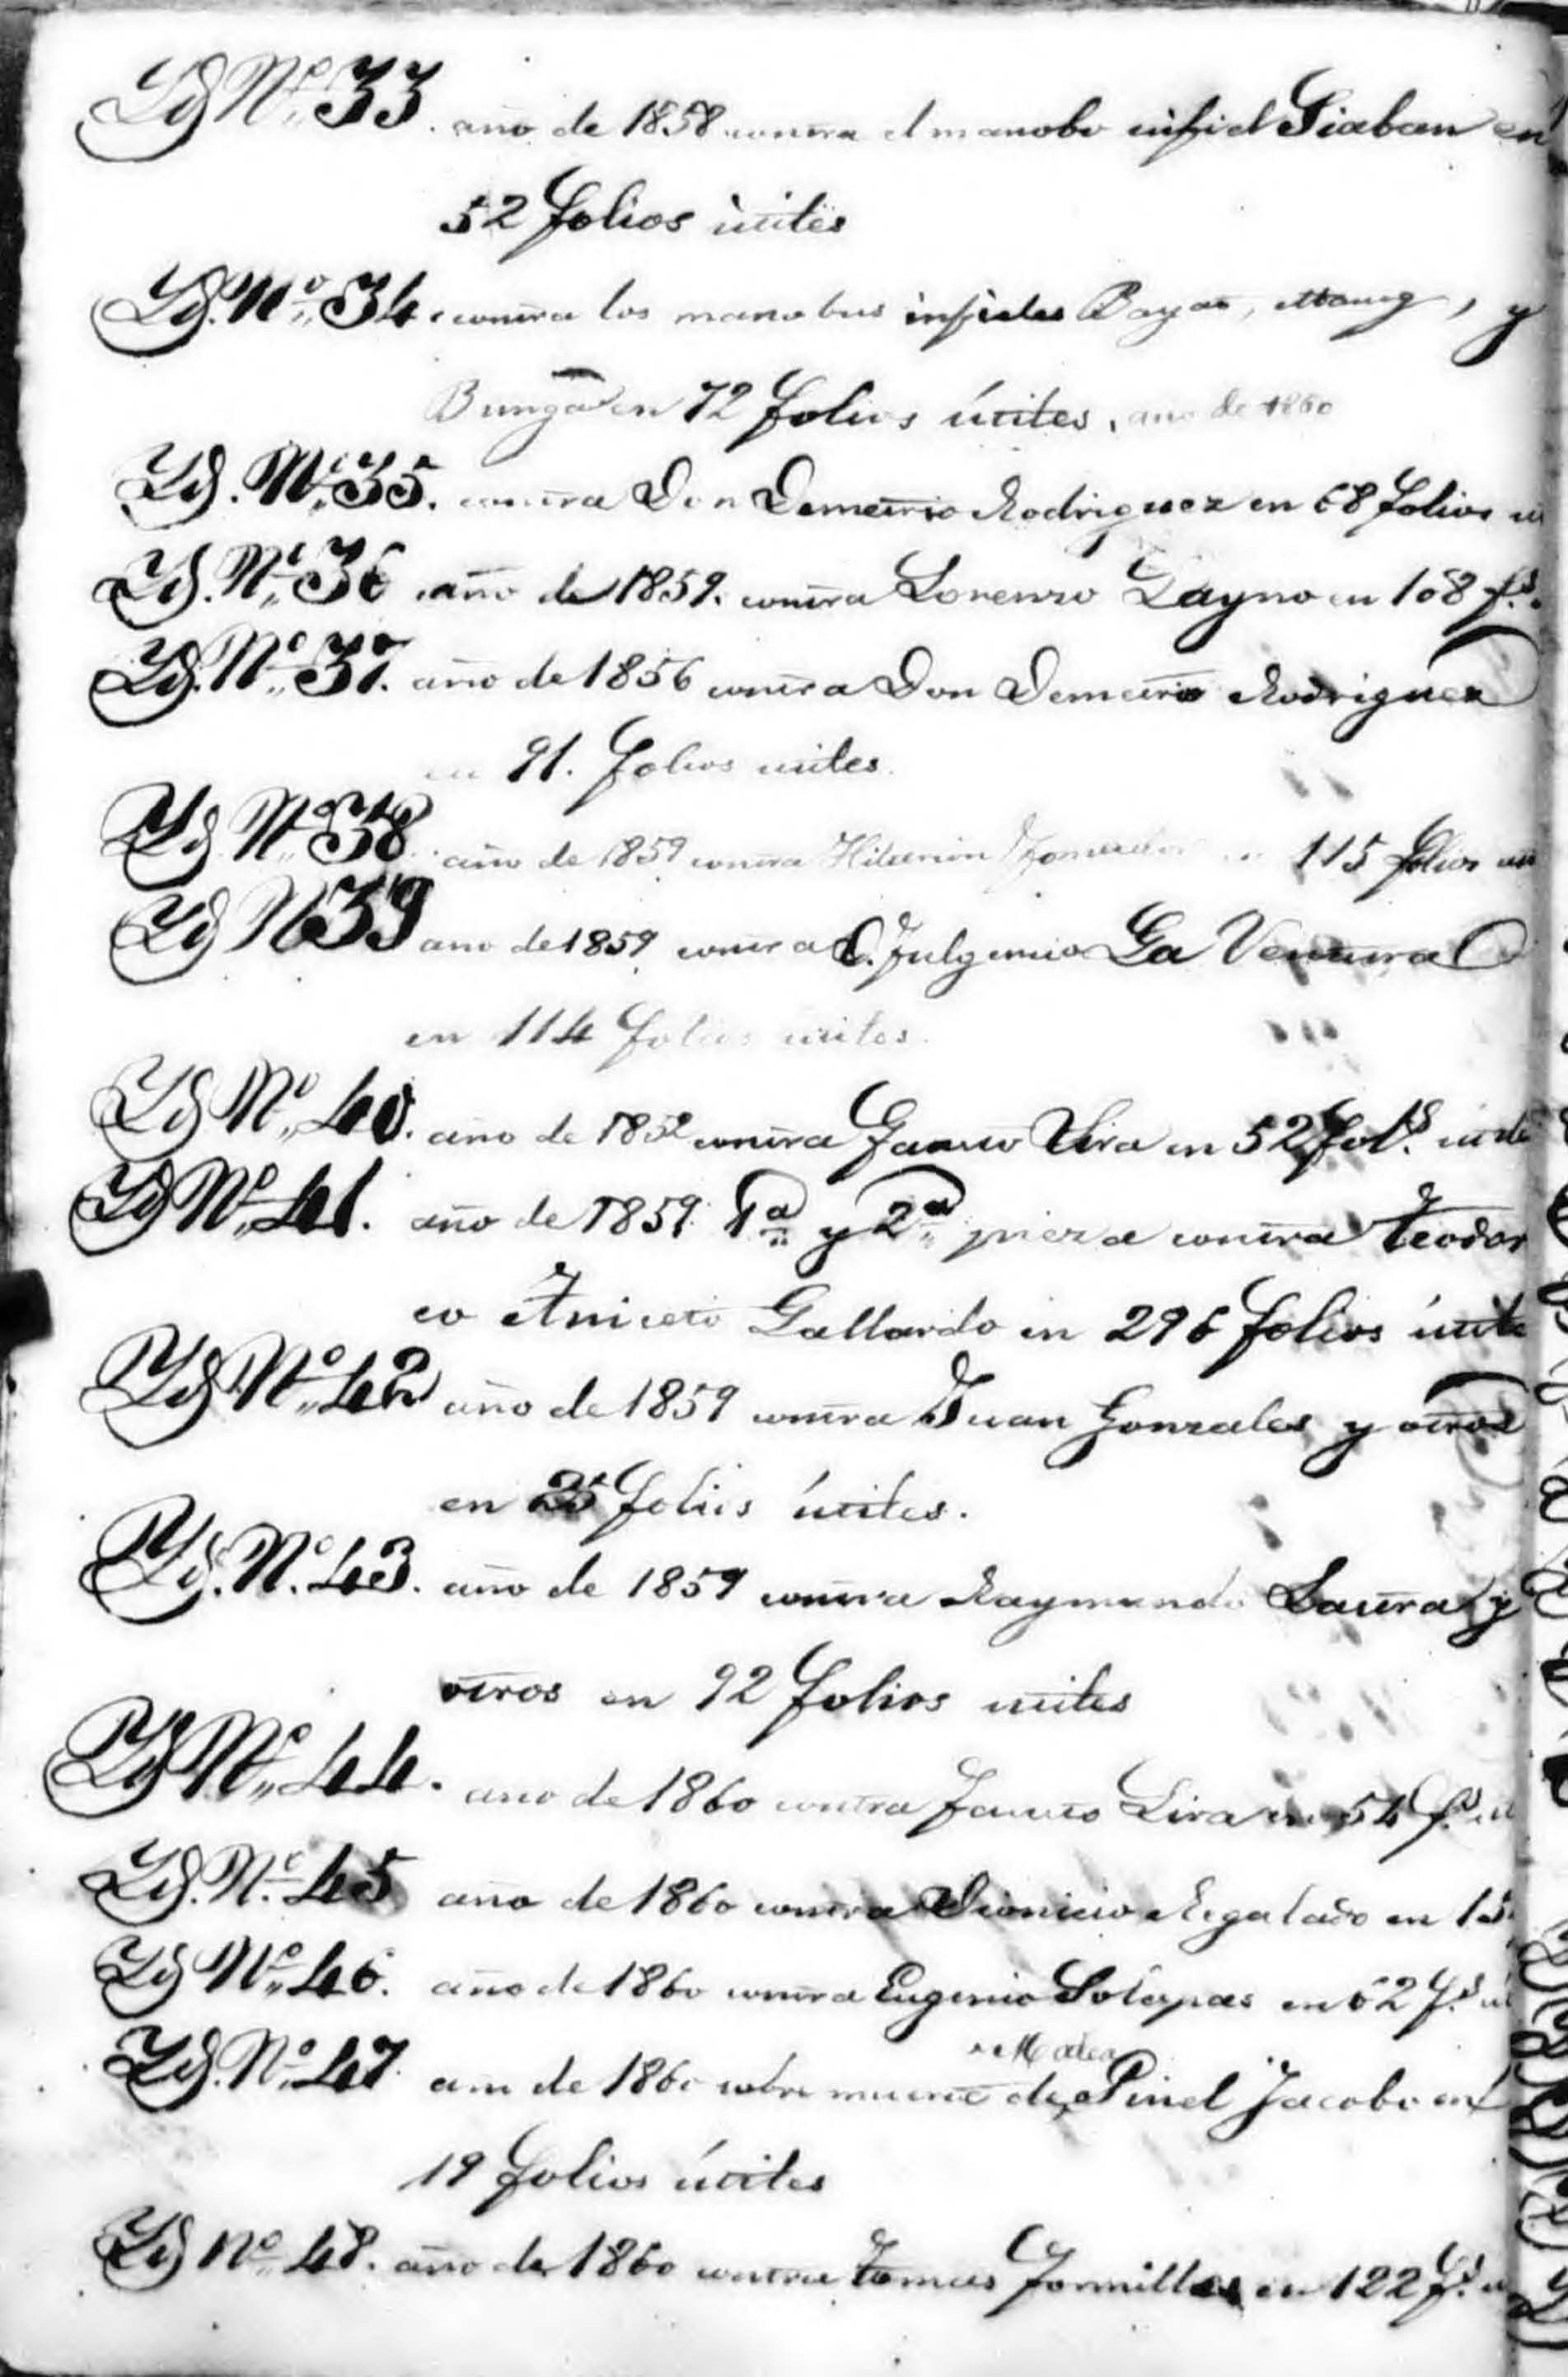 Yd Nº 33. año de 1858 contra el manobo infiel Siaban en
52 folios útiles
Yd. Nº 34. contra los manobos infieles Bayao, Manug, y
Bunga en 72 folios útiles, año de 1860
Yd. Nº 35. contra Don Demetrio Rodriguez en 68 folios
Yd. Nº 36 año de 1859. contra Lorenzo Layno en 108 f.s
Yd. Nº 37. año de 1856 contra Don Demetrio Rodriguez
en 91. folios utiles.
Yd Nº 38 año de 1859 contra Hilarion 115 folios
Yd N 39 año de 1859 contra D. Fulgencio La Ventura
en 114 folios utiles.
Yd Nº 40. año de 1859 contra Fausto Lira en 52 fol.s
Yd Nº 41. año de 1859. 1ª y 2ª pieza contra Teodor
co Aniceto Gallardo en 296 folios útile
Yd Nº 42 año de 1859 contra Juan Gonzales y otros
en 25 folios útiles.
Yd. Nº 43. año de 1859 contra Raymundo Laura y
otros en 92 folios utiles
Yd Nº 44. año de 1860 contra Fausto Lira en 54 f.s
Yd. Nº 45 año de 1860 contra Dionicio Regalado en 15
Yd Nº 46. año de 1860 contra Eugenio Solapas en 62 f.s
Yd. Nº 47 año de 1860 sobre muerte de Matea Pinel Jacobo en
19 folios útiles
Yd Nº 48. año de 1860 contra Tomas Jormilles en 122 f.s